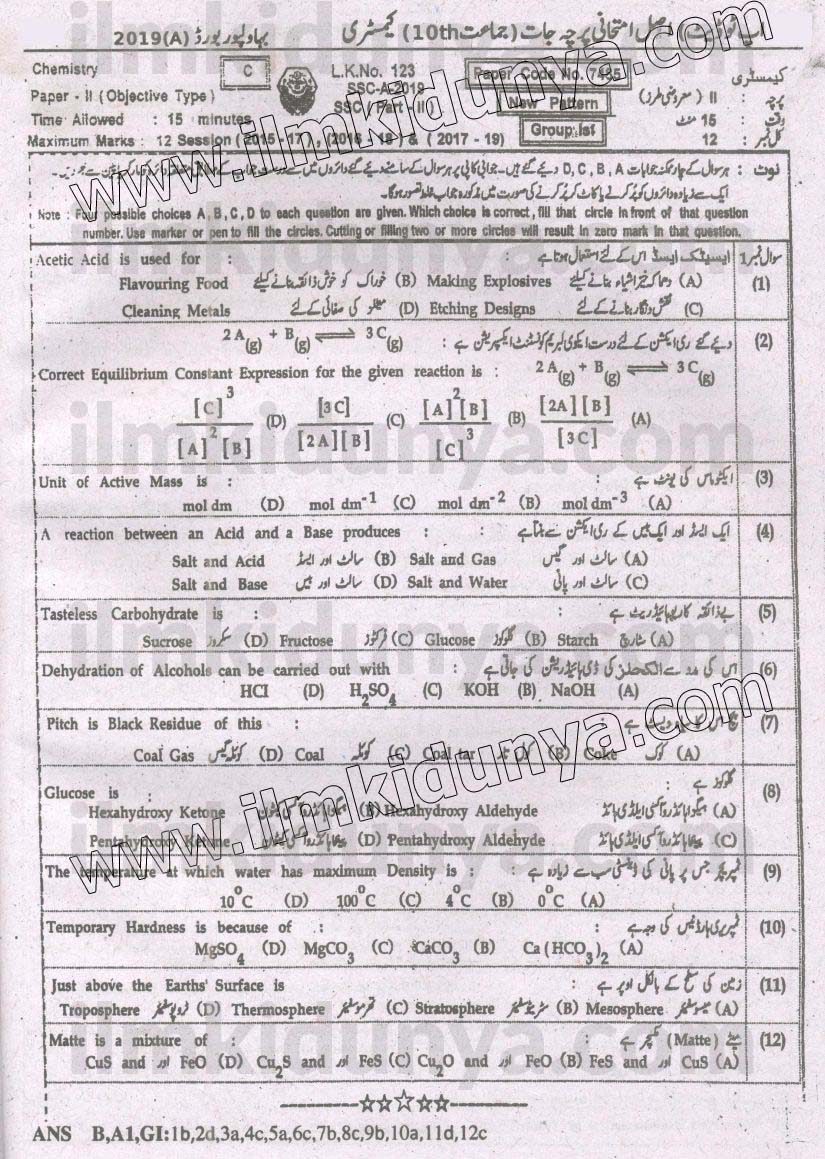 اپ ٹو ڈیٹ اصل امتحانی پرچہ جات (جماعت 10th) کیمسٹری بہاولپور بورڈ 2019(A)
Chemistry C L.K.No. 123 Paper Code No. 7485 کیمسٹری
Paper - II (Objective Type) SSC-A-2019 New Pattern پرچہ : II (معروضی طرز)
SSC (Part - II)
Time Allowed : 15 minutes Group Ist وقت : 15 منٹ
Maximum Marks : 12 Session (2015 - 17), (2016 - 18) & (2017 - 19) کل نمبر : 12
نوٹ : ہر سوال کے چار ممکنہ جوابات D, C, B, A دیئے گئے ہیں۔ جوابی کاپی پر ہر سوال کے سامنے دیئے گئے دائروں میں سے درست جواب کے مطابق متعلقہ دائرہ کو مارکر یا پین سے بھر دیں۔
ایک سے زیادہ دائروں کو پُر کرنے یا کاٹ کر پُر کرنے کی صورت میں مذکورہ جواب غلط تصور ہوگا۔
Note : Four possible choices A, B, C, D to each question are given. Which choice is correct, fill that circle in front of that question
number. Use marker or pen to fill the circles. Cutting or filling two or more circles will result in zero mark in that question.
Acetic Acid is used for : ایسیٹک ایسڈ اس کے لئے استعمال ہوتا ہے : سوال نمبر 1
Flavouring Food خوراک کو خوش ذائقہ بنانے کیلئے (B) Making Explosives دھماکہ خیز اشیاء بنانے کیلئے (A) (1)
Cleaning Metals میٹلز کی صفائی کے لئے (D) Etching Designs نقش و نگار بنانے کے لئے (C)
2A(g) + B(g) ⇌ 3C(g) دیئے گئے ری ایکشن کے لئے درست ایکوی لبریم کونسٹنٹ ایکسپریشن ہے : (2)
Correct Equilibrium Constant Expression for the given reaction is : 2A(g) + B(g) ⇌ 3C(g)
[C]³ / [A]² [B] (D) [3C] / [2A][B] (C) [A]²[B] / [C]³ (B) [2A][B] / [3C] (A)
Unit of Active Mass is : ایکٹو ماس کی یونٹ ہے : (3)
mol dm (D) mol dm⁻¹ (C) mol dm⁻² (B) mol dm⁻³ (A)
A reaction between an Acid and a Base produces : ایک ایسڈ اور ایک بیس کے ری ایکشن سے بنتا ہے : (4)
Salt and Acid سالٹ اور ایسڈ (B) Salt and Gas سالٹ اور گیس (A)
Salt and Base سالٹ اور بیس (D) Salt and Water سالٹ اور پانی (C)
Tasteless Carbohydrate is : بے ذائقہ کاربوہائیڈریٹ ہے : (5)
Sucrose سکروز (D) Fructose فرکٹوز (C) Glucose گلوکوز (B) Starch سٹارچ (A)
Dehydration of Alcohols can be carried out with : اس کی مدد سے الکحلز کی ڈی ہائیڈریشن کی جاتی ہے : (6)
HCl (D) H₂SO₄ (C) KOH (B) NaOH (A)
Pitch is Black Residue of this : (7)
Coal Gas کولگیس (D) Coal کوئلہ (C) Coal tar کول تار (B) Coke کوک (A)
Glucose is : گلوکوز ہے : (8)
Hexahydroxy Ketone ہیگزا ہائڈروآکسی کیٹون (B) Hexahydroxy Aldehyde ہیگزا ہائڈروآکسی ایلڈی ہائڈ (A)
Pentahydroxy Ketone پینٹا ہائڈروآکسی کیٹون (D) Pentahydroxy Aldehyde پینٹا ہائڈروآکسی ایلڈی ہائڈ (C)
The temperature at which water has maximum Density is : ٹمپریچر جس پر پانی کی ڈینسٹی سب سے زیادہ ہے : (9)
10°C (D) 100°C (C) 4°C (B) 0°C (A)
Temporary Hardness is because of : ٹمپریری ہارڈنیس کی وجہ ہے : (10)
MgSO₄ (D) MgCO₃ (C) CaCO₃ (B) Ca(HCO₃)₂ (A)
Just above the Earths' Surface is : زمین کی سطح کے بالکل اوپر ہے : (11)
Troposphere ٹروپوسفیئر (D) Thermosphere تھرموسفیئر (C) Stratosphere سٹریٹوسفیئر (B) Mesosphere میسوسفیئر (A)
Matte is a mixture of : میٹے (Matte) مکسچر ہے : (12)
CuS and اور FeO (D) Cu₂S and اور FeS (C) Cu₂O and اور FeO (B) FeS and اور CuS (A)
----------☆☆☆☆☆----------
ANS B,A1,GI:1b,2d,3a,4c,5a,6c,7b,8c,9b,10a,11d,12c
www.ilmkidunya.com
www.ilmkidunya.com
ilmkidunya.com
ilmkidunya.com
ilmkidunya.com